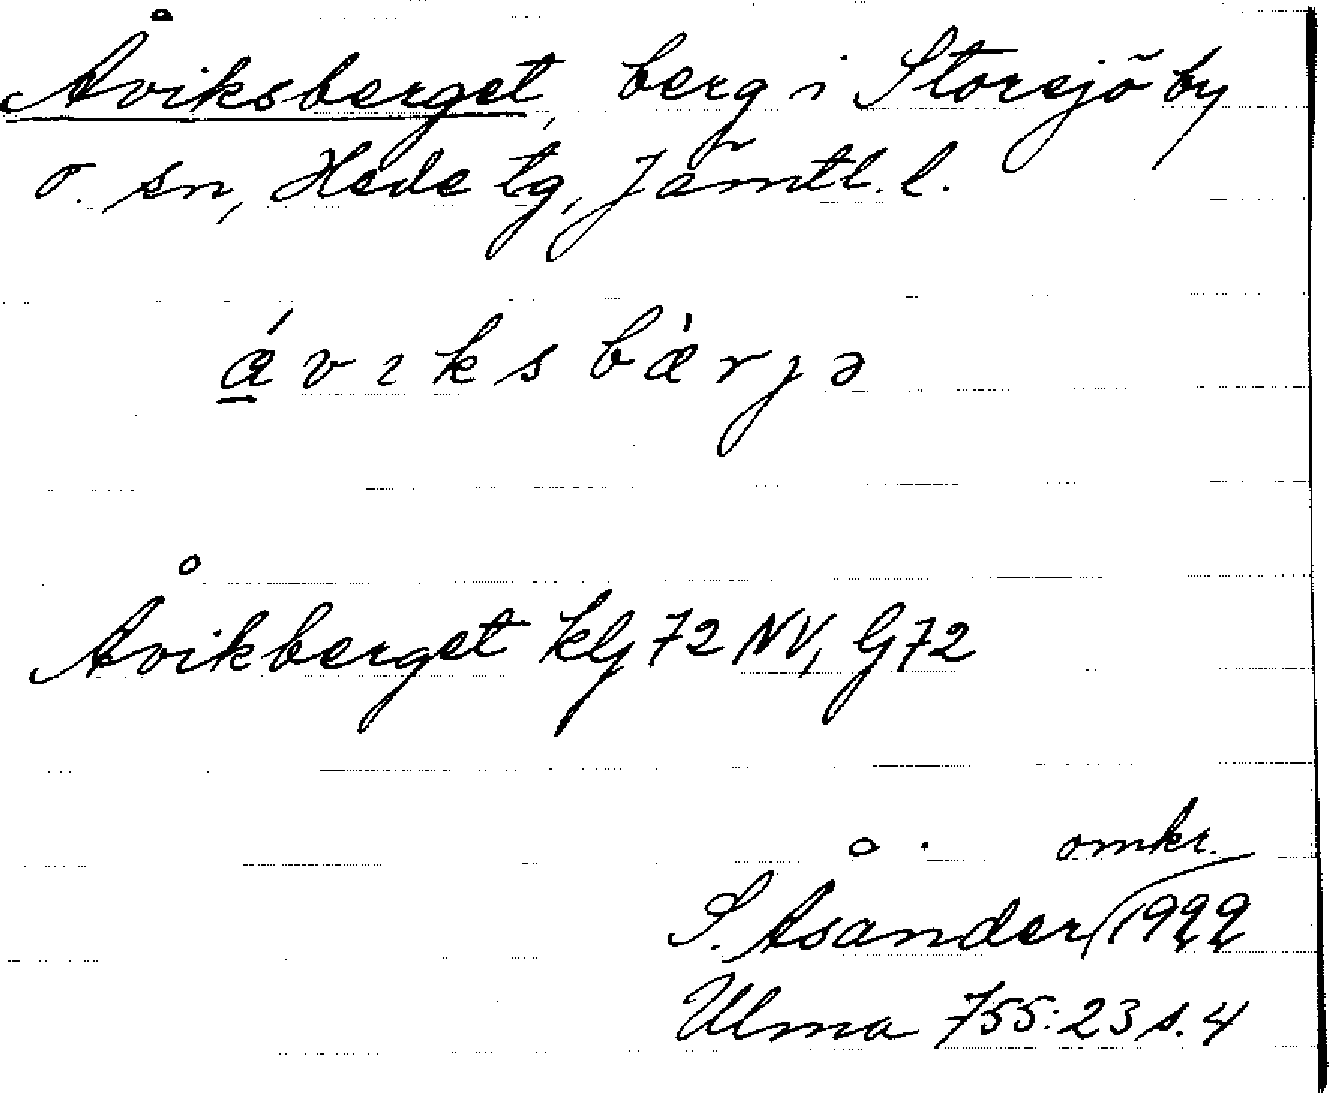 Åviksberget, berg i Storsjö by
o. sn, Hede tg, Jämtl. l.
ǽ v ɩ k s b æ̀ r j ə
Åvikberget klg 72 NV, G 72
omkr.
S. Åsander, 1922
Ulma 755:23 s. 4